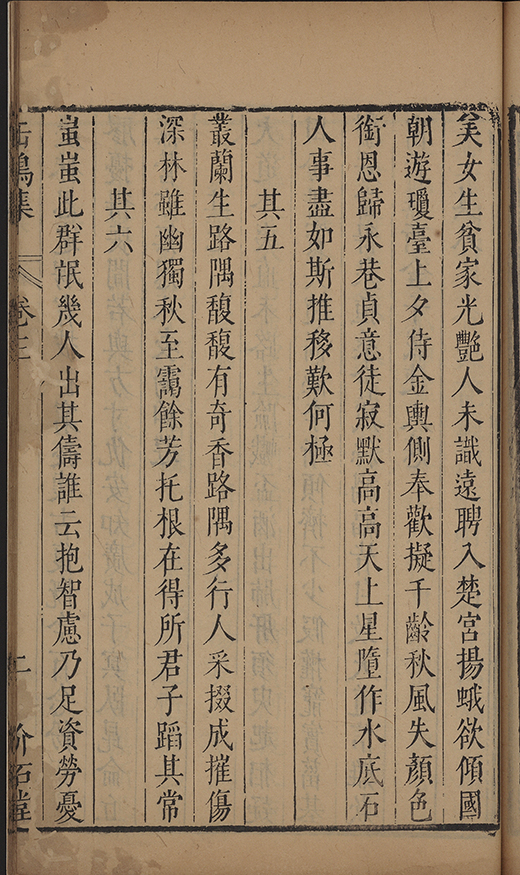 美女生貧家光艷人未識遠聘入楚宮揚蛾欲傾國
朝遊瓊臺上夕侍金輿側奉歡擬千齡秋風失顏色
銜恩歸永巷貞意徒寂默高高天上星墮作水底石
人事盡如斯推移歎何極
其五
叢蘭生路隅馥馥有奇香路隅多行人采掇成摧傷
深林雖幽獨秋至靄餘芳托根在得所君子蹈其常
其六
蚩蚩此群氓幾人出其儔誰云抱智慮乃足資勞憂
鳴集 卷三 二